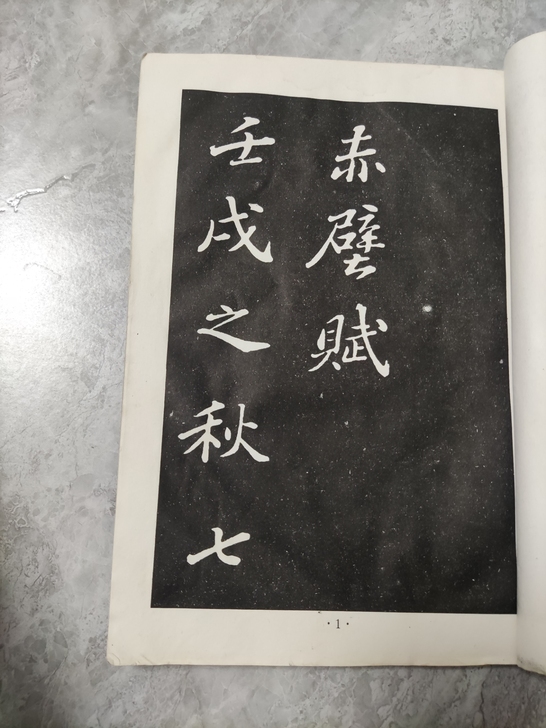 赤壁賦
壬戌之秋七
·1·